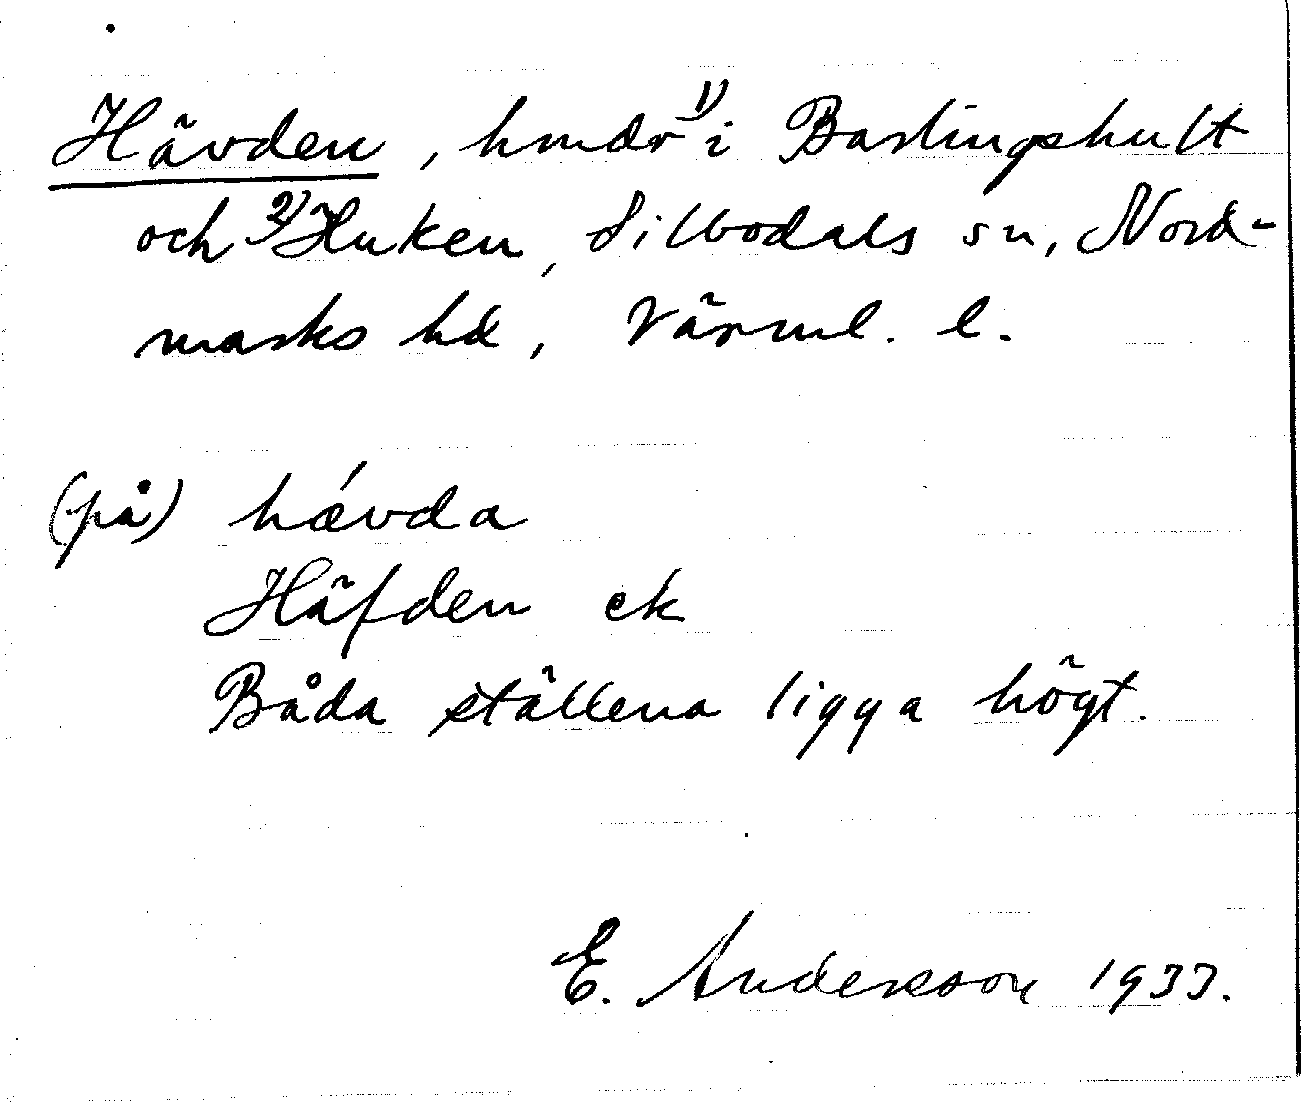 Hävden, hmdr 1) i Barlingshult
och 2) Huken, Silbodals sn, Nord-
marks hd, Värml. l.
(på) hǽvda
Häfden ek
Båda ställena ligga högt.
E. Andersson 1933.